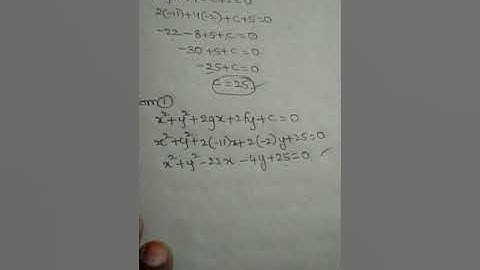 2(-11)+4(-2)+c+5=0
-22-8+5+c=0
-30+5+c=0
-25+c=0
c=25
x²+y²+2gx+2fy+c=0
x²+y²+2(-11)x+2(-2)y+25=0
x²+y²-22x-4y+25=0